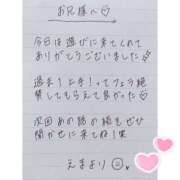 お兄様へ♡
今日は遊びに来てくれて
ありがとうございました
過去1上手！ってフェラ絶
賛してもらえて良かった♡
次回あの話の続きもぜひ
聞かせに来てね！笑
えまより☺